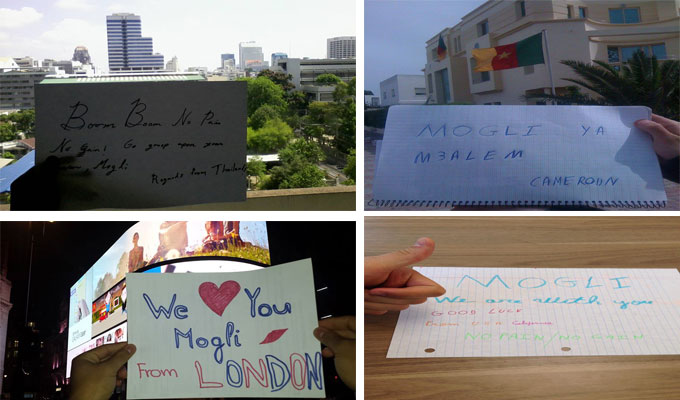 Boom Boom No Pain
No Gain! Go group upon
Mogli
Regards from Thailand
MOGLI YA
M3ALEM
CAMEROON
We ❤ You
Mogli
From LONDON
MOGLI
We are with you
GOOD LUCK
NO PAIN/NO GAIN